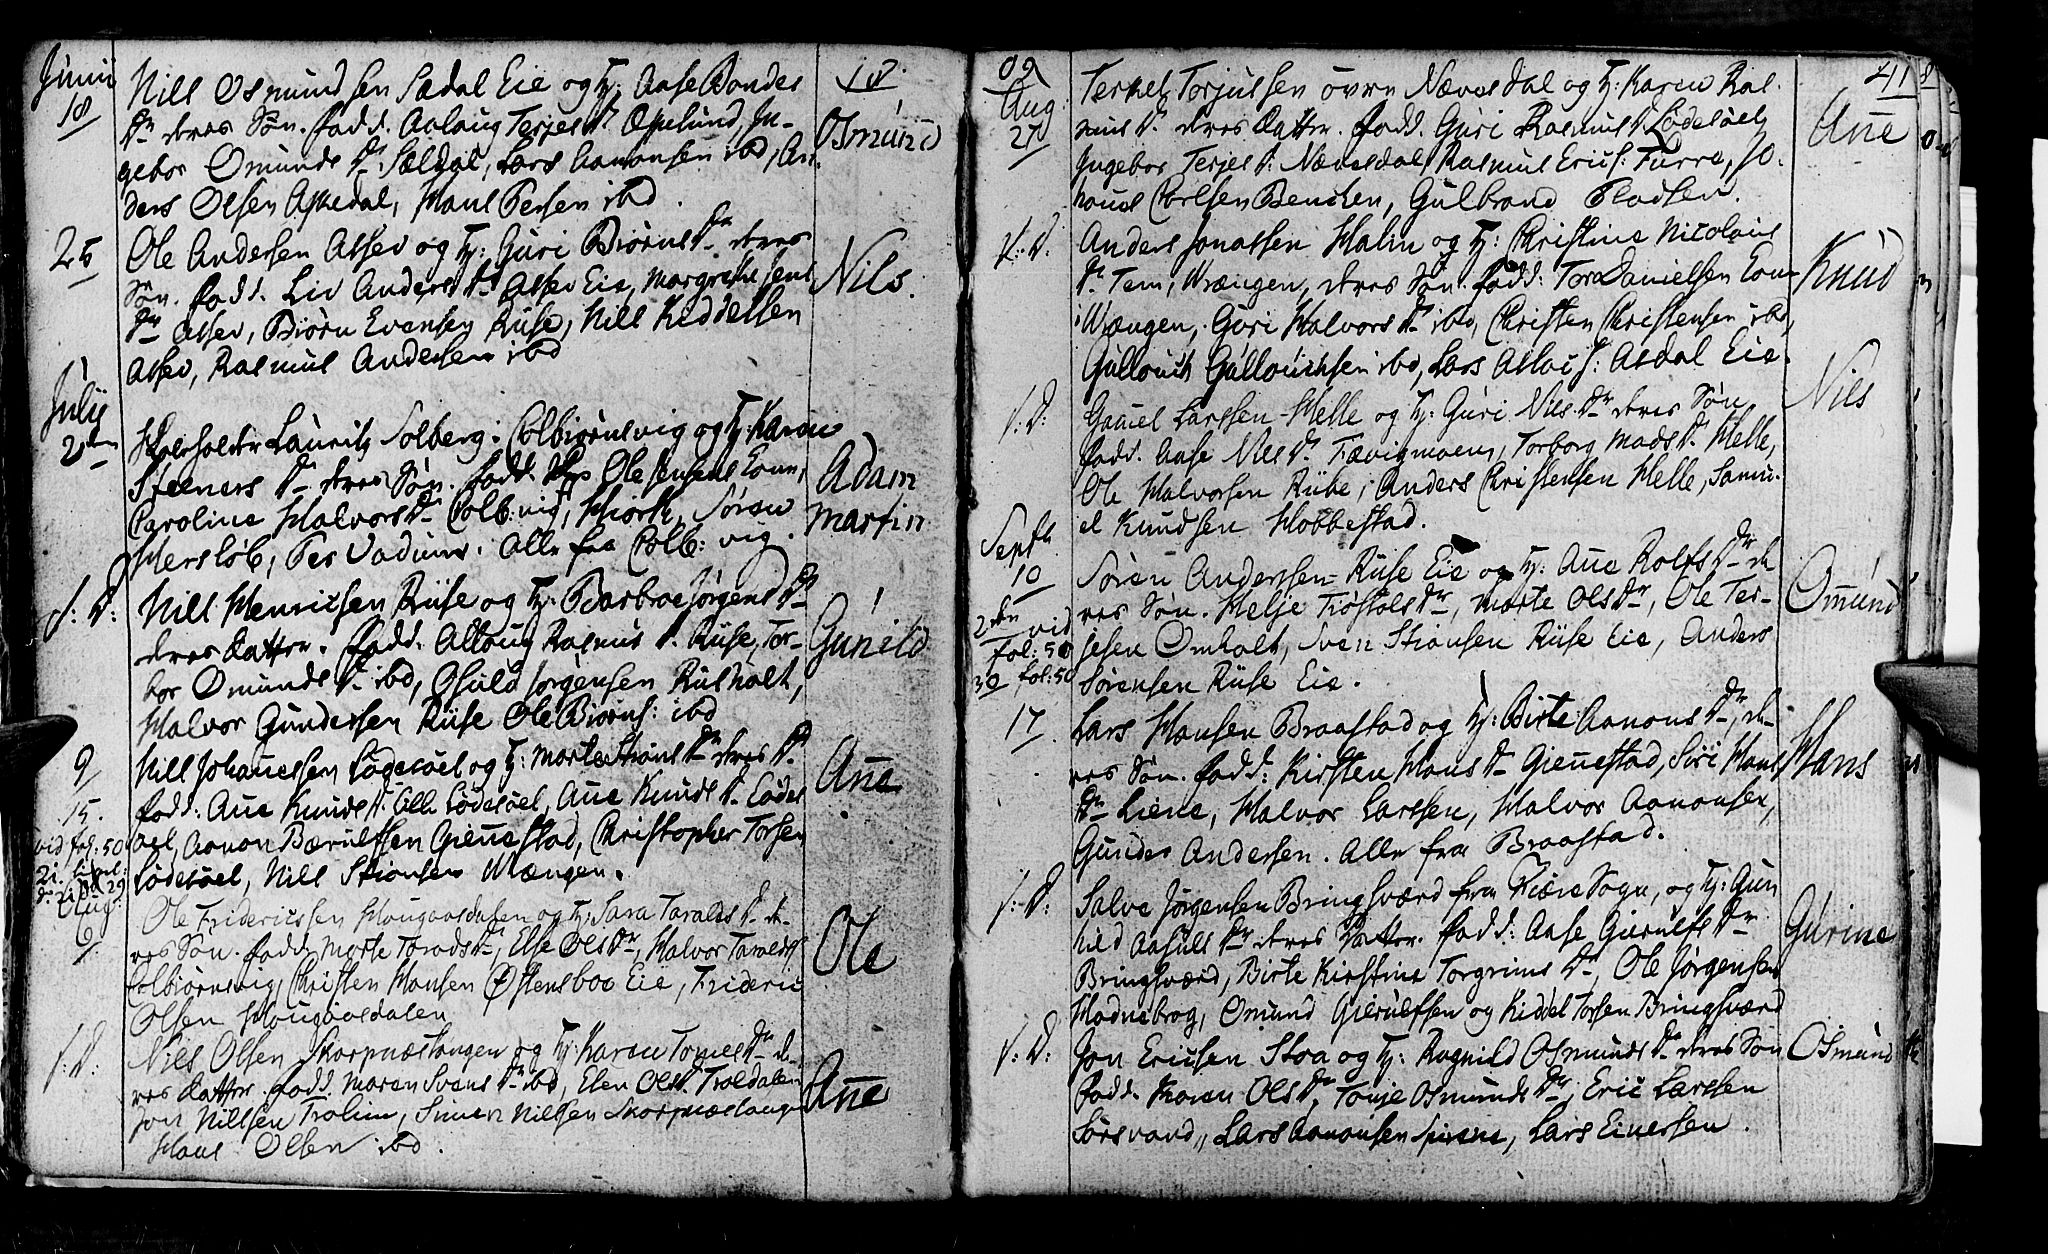 Junii
18
Nills Osmundsen Sædal Eie og H: Aase Bondes
Dr. deres Søn. fadd. Aslaug Terjes Dr. Øpelund, In-
gebor Omunds Dr. Sældal, Lars Aanonsen ibd, An-
ders Olsen Askedal, Hans Persen ibd.
18.
Osmund
25
Ole Andersen Assev og H: Guri Biørns Dr. deres
Søn. fadd. Liv Anders Dr. Assev Eie, Margrethe Jens
Dr. Assev, Biørn Evensen Riise, Nills Kiddelsen
Assev, Rasmus Andersen ibd
Nils.
Julii
2den
Lauritz Solberg: Colbiørnsvig og H: Karen
Steeners Dr. deres Søn. fadd. Ole Jensens Kone,
Caroline Halvors Dr. Colb: vig, Hiorth, Søren
Hersløb, Per Vadum. Alle fra Colb: vig.
Adam
Martin
S: D:
Nills Henricsen Riise og H: Barbroe Jørgens Dr.
deres Datter. fadd. Aslaug Rasmus D. Riise, Tor-
bor Omunds Dr. ibd, Osuld Jørgensen Riisholt,
Halvor Gundersen Riise Ole Biørns: ibd
Gunild
9
Nills Johannessen Lødesøel og H: Marte Stians Dr. deres Dr.
fadd: Anne Knuds D. Lødesøel, Anne Knuds D. Lødes
øel, Aanon Bærulfsen Gjennestad, Christopher Torsen
Lødesøel, Nills Stiansen Wrængen.
Anne
15.
vid fol: 50
Aug:
6
Ole Fridericsen Hougaasdalen og H: Sara Taralds D. de-
res Søn. fadd. Marte Taralds Dr., Else Ols Dr., Halvor Taralds
Colbiørnsvig, Christen Hansen Østensboe Eie, Frideric
Olsen Hougaasdalen
Ole
S: D:
Nils Olsen Skarpnæstangen og H: Karen Tomes Dr. de-
res Datter. fadd. Maren Svens Dr. ibd, Elen Ols D. Troldalen
Jon Nillsen Trolim, Simen Nillsen Skarpnæstangen
Hans Olsen ibd.
Anne
09
41
Aug:
27
Terkel Torjulsen øvre Nævesdal og H: Karen Ras-
mus D. deres Datter. fadd. Guri Rasmus D. Lødesøel,
Ingebor Terjes D. Nævesdal, Rasmus Erics: Furre, Jo-
hannes Carlsen Benchen, Gulbrand Pladsen.
Anne
S: D:
Anders Jonassen Malin og H: Christine Nicolaus
Dr. Tem, Wrængen, deres Søn. fadd: Tore Danielsen Kone
Wrængen, Guri Halvors Dr. ibd, Christen Christensen ibd,
Gullouch Gullouchsen ibd, Lars Aslacs: Asdal Eie.
Knud
S: D:
Gamel Larssen Helle og H: Guri Nils Dr. deres Søn
fadd. Aase Nils D. Fævigmoen, Torborg Mads D. Helle,
Ole Halvorsen Riise, Anders Christensen Helle, Samu-
el Knudsen Hobbestad.
Nils
Septb
10
Søren Anderssen Riise Eie og H: Anne Rolfs Dr. de-
res Søn. Helje Trøstols Dr., Marte Ols Dr., Ole Ter-
jesen Omholt, Sven Stiansen Riise Eie, Anders
Sørensen Riise Eie.
Omund
2den vid
fol: 50
30 fol: 50
17
Lars Hansen Braastad og H: Birte Aanons Dr. de-
res Søn. fadd: Kirsten Hans Dr. Gjennestad, Siri Hans
Dr. Liene, Halvor Larssen, Halvor Aanonsen,
Gunder Andersen. Alle fra Braastad.
Hans
S: D:
Salve Jørgensen Bringsværd fra Fiære Sogn, og H: Gun-
nild Aasuls Dr. deres Datter. fadd: Aase Gierulfs Dr.
Bringsværd, Birte Kirstine Torgrims Dr., Ole Jørgensen
Hadnebrog, Omund Gierulfsen og Kiddel Torsen Bringsværd
Gurine
S: D:
Jon Ericsen Stoa og H: Ragnild Osmunds Dr. deres Søn
fadd. Karen Ols Dr., Tonje Osmunds Dr., Eric Larssen
Sørsvand, Lars Aanonsen Spirene, Lars Einersen.
Osmund